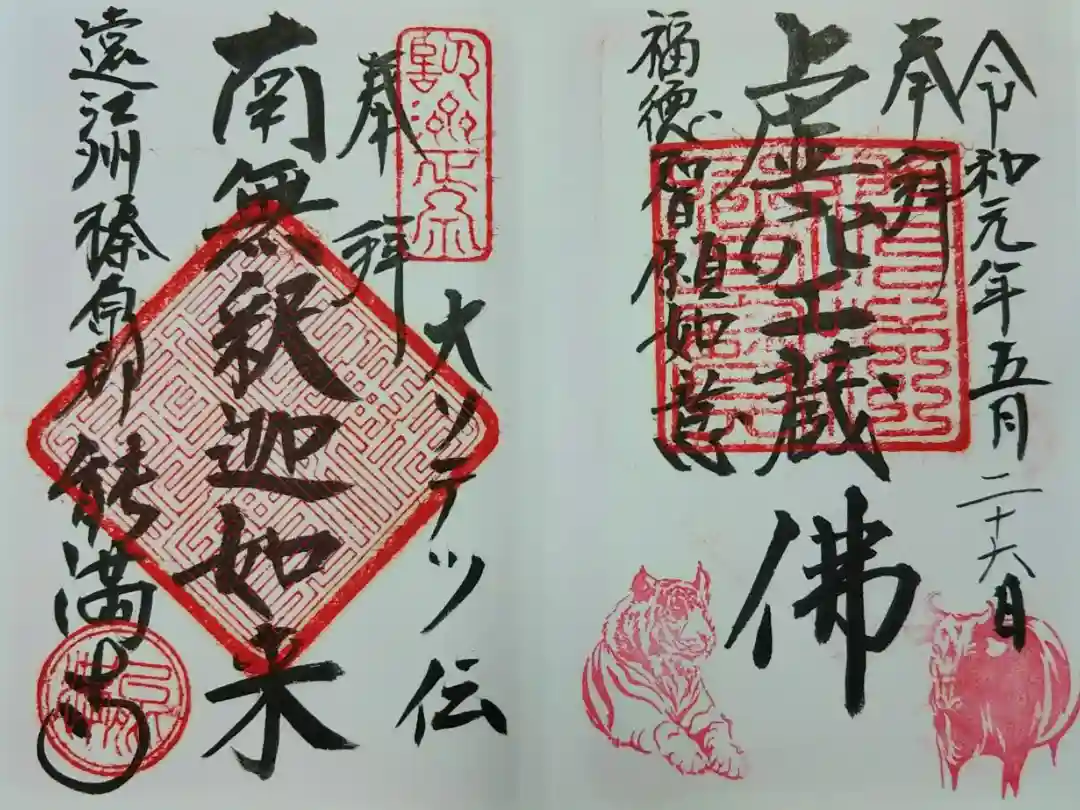 令和元年五月二十六日
奉拜
虚空蔵佛
福徳智願如意
大ソテツ伝
奉拜
南無釈迦如来
遠江州榛原郡能満寺